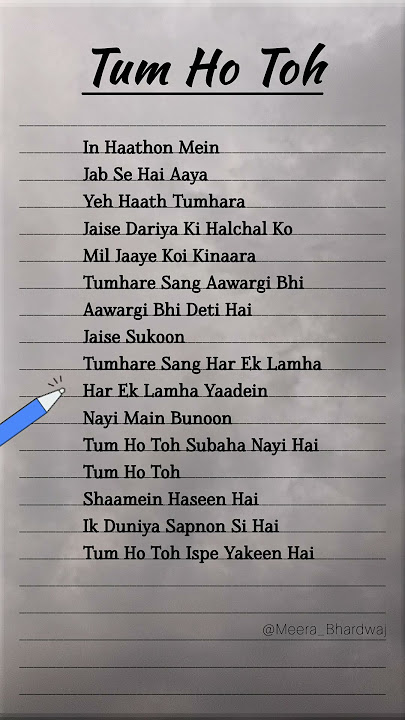 Tum Ho Toh
In Haathon Mein
Jab Se Hai Aaya
Yeh Haath Tumhara
Jaise Dariya Ki Halchal Ko
Mil Jaaye Koi Kinaara
Tumhare Sang Aawargi Bhi
Aawargi Bhi Deti Hai
Jaise Sukoon
Tumhare Sang Har Ek Lamha
Har Ek Lamha Yaadein
Nayi Main Bunoon
Tum Ho Toh Subaha Nayi Hai
Tum Ho Toh
Shaamein Haseen Hai
Ik Duniya Sapnon Si Hai
Tum Ho Toh Ispe Yakeen Hai
@Meera_Bhardwaj